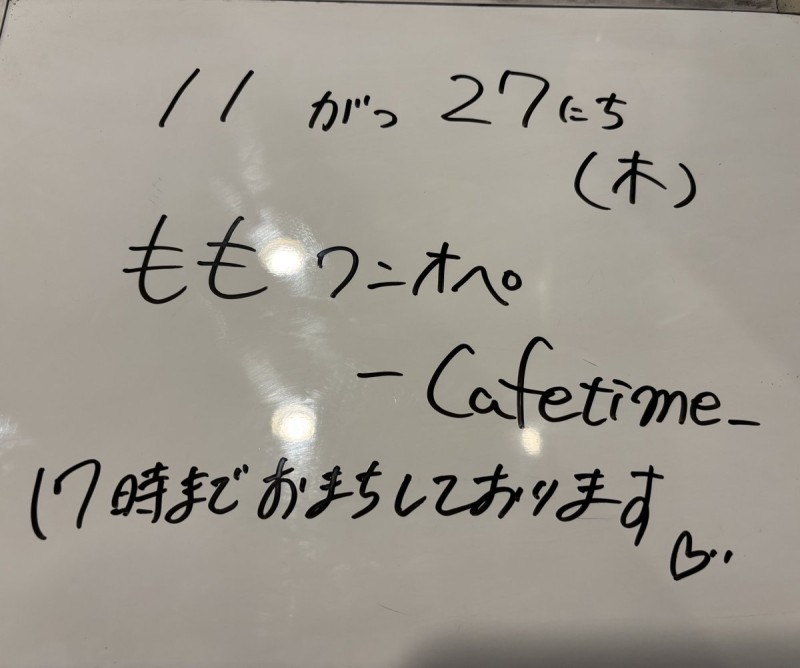 11 がつ 27にち
(木)
もも ワンオペ
-Cafetime-
17時までおまちしております♡..